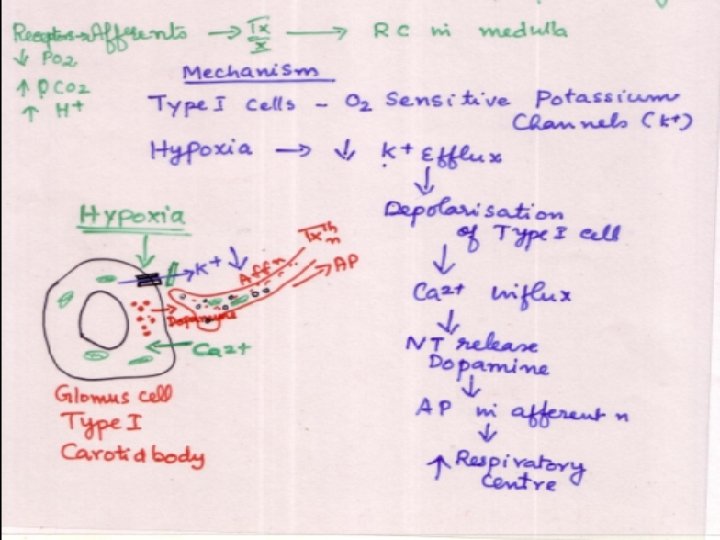 Receptors→Afferents → IX/X → RC in medulla
↓ PO2
↑ PCO2
↑ H+
Mechanism
Type I cells - O2 Sensitive Potassium
Channels (K+)
Hypoxia → ↓ K+ Efflux
↓
Depolarisation
of Type I cell
↓
Ca2+ influx
↓
NT release
Dopamine
↓
AP in afferent n
↓
↑ Respiratory
Centre
Hypoxia
K+ ↓
Aff n
IXth
n
AP
Dopamine
Ca2+
Glomus cell
Type I
Carotid body